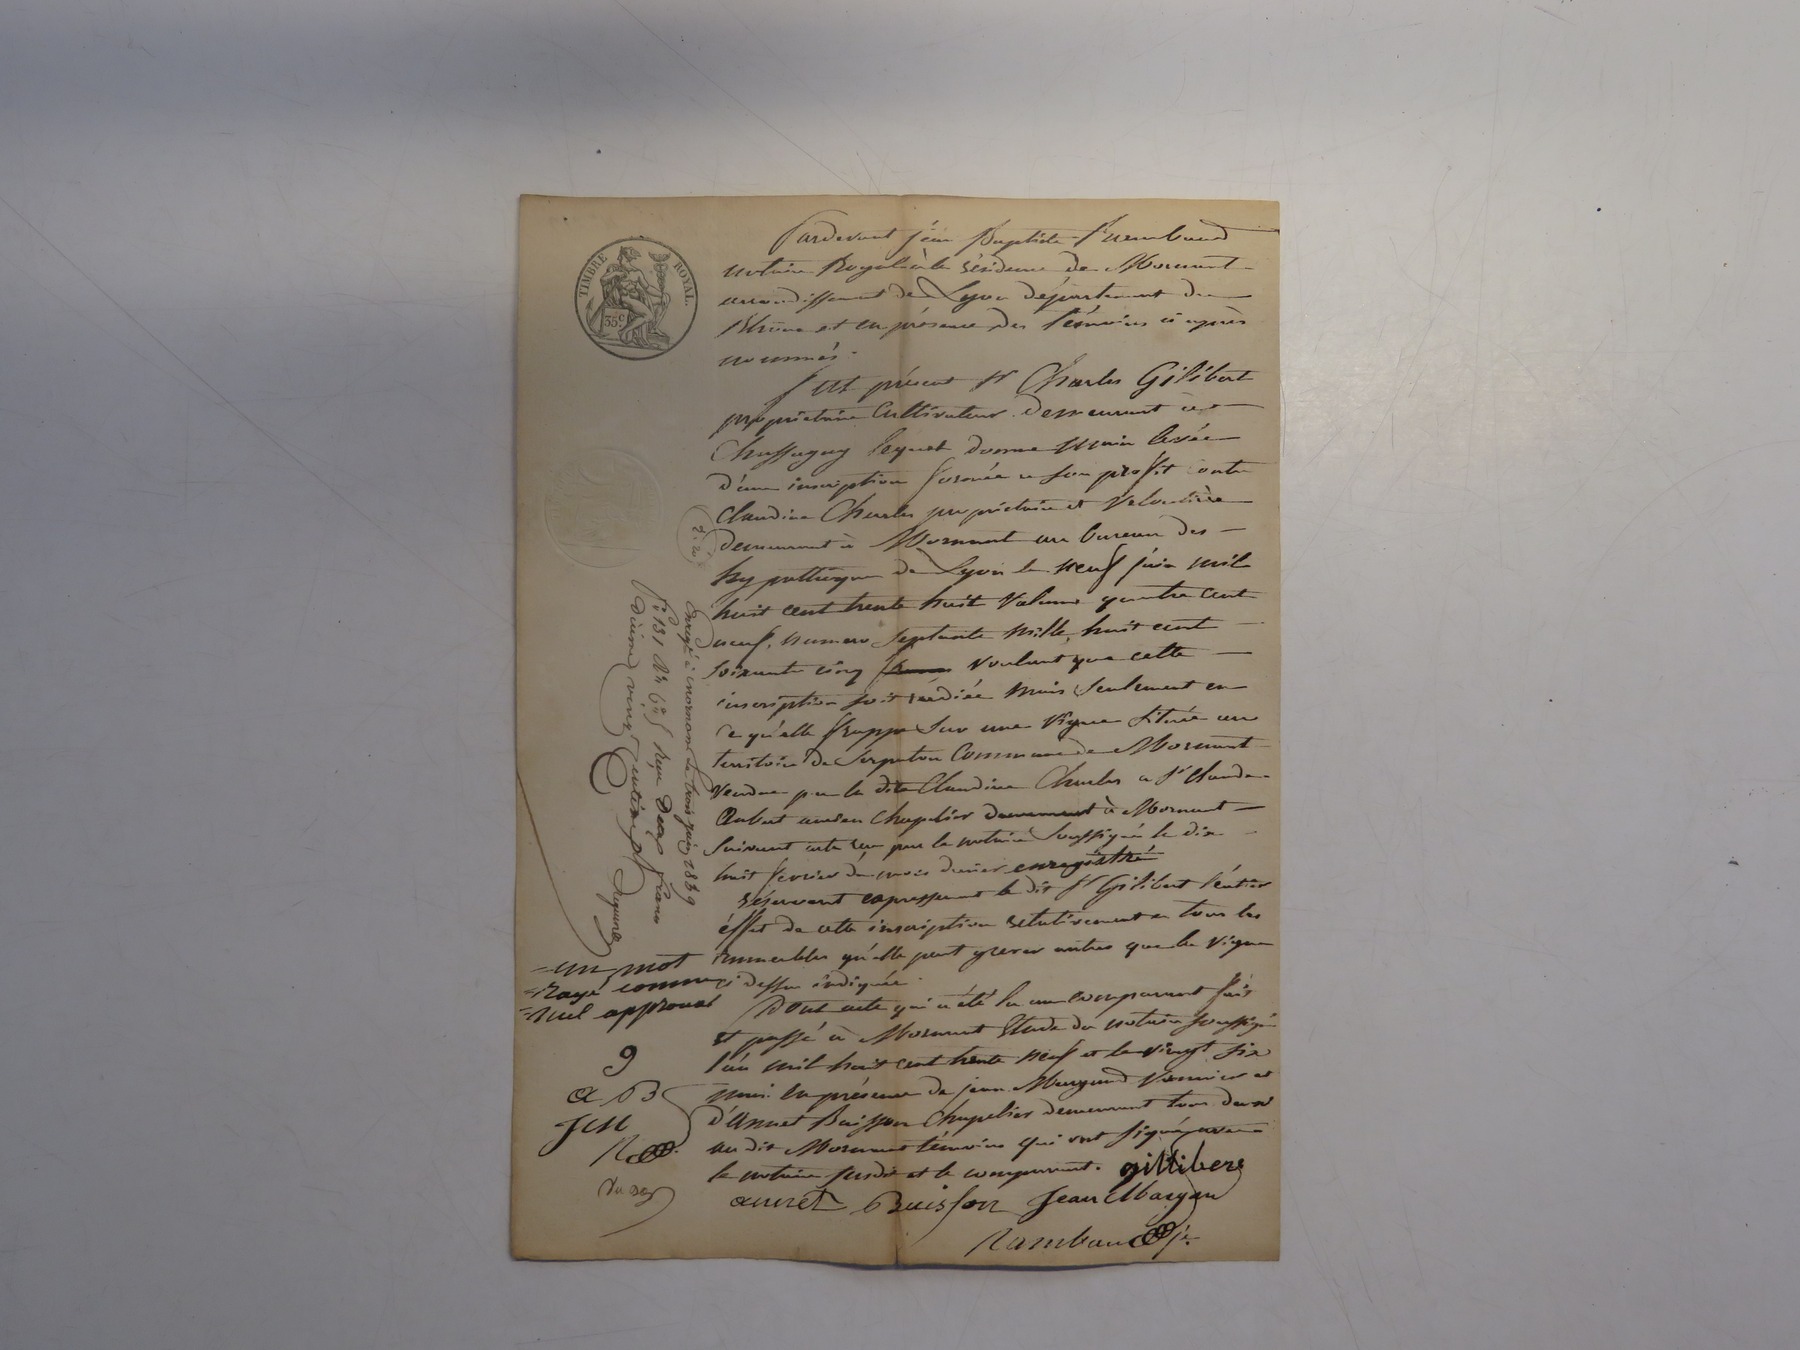 TIMBRE ROYAL.
35c
Pardevant jean Baptiste Rambaud
notaire Royal à la résidence de Mornant
arrondissement de Lyon département du
Rhône et en présence des témoins ci après
nommés.
fut présent Sr Charles Gilibert
propriétaire cultivateur demeurant à
Chassagny lequel donne main levée
d'une inscription formée a son profit contre
Claudine Charles propriétaire et
demeurant à Mornant au bureau des
hypothèques de Lyon le neuf juin mil
huit cent trente huit volume quatre cent
neuf, numero septante mille, huit cent
soixante cinq voulant que cette
inscription soit radiée mais seulement en
ce qu'elle frappe sur une vigne située au
territoire de Serpaton Commune de Mornant
vendue par la dite Claudine Charles a Sr Claude
Aubert ancien Chapelier demeurant à Mornant
suivant acte reçu par le notaire soussigné le dix
huit fevrier du mois dernier enregistré
réservant expressement le dit Sr Gilibert l'entier
éffet de cette inscription relativement a tous les
immeubles qu'elle peut grever autres que la vigne
ci dessus indiquée.
Dont acte qui a été lu au comparant fait
et passé à Mornant Etude du notaire soussigné
l'an mil huit cent trente neuf et le vingt six
mai. en présence de jean Margand et
d'Annet Buisson Chapelier demeurant tous deux
au dit Mornant témoins qui ont signé avec
le notaire susdit et le comparant. gillibert
annet Buisson Jean Margan
Rambaud
Enregé à mornant le trois juin 1839
fo 131 reçu deux francs
dixieme vingt centimes
= un mot
= rayé comme
= nul approuvé
g
a B
JM
R